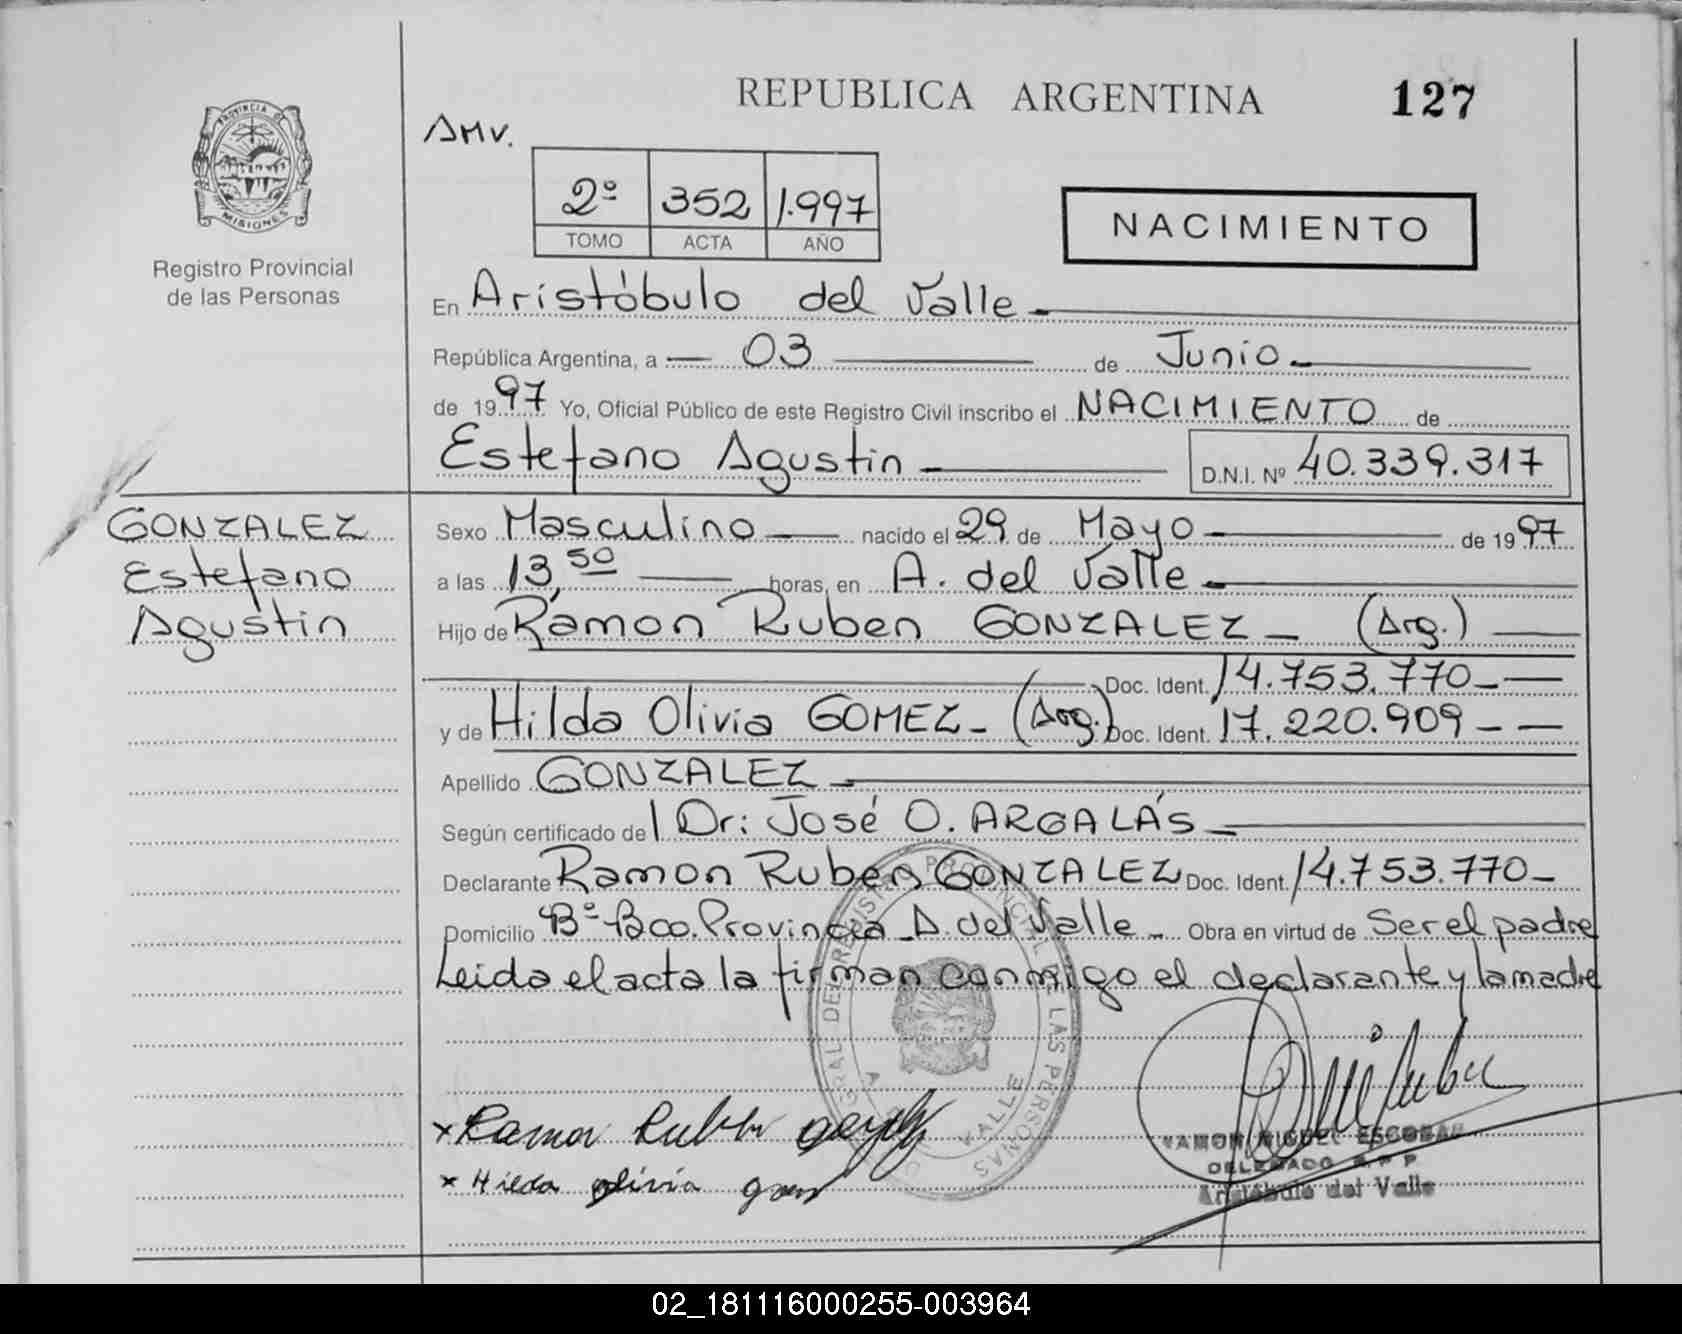 REPUBLICA ARGENTINA 127
PROVINCIA DE
MISIONES
Registro Provincial
de las Personas
AMV.
2º 352 1.997
TOMO ACTA AÑO
NACIMIENTO
En Aristóbulo del Valle
República Argentina, a 03 de Junio
de 1997 Yo, Oficial Público de este Registro Civil inscribo el NACIMIENTO de
Estefano Agustin D.N.I. Nº 40.339.317
GONZALEZ
Estefano
Agustin
Sexo Masculino nacido el 29 de Mayo de 1997
a las 13,50 horas, en A. del Valle
Hijo de Ramon Ruben GONZALEZ (Arg.)
Doc. Ident. 14.753.770
y de Hilda Olivia GOMEZ (Arg.) Doc. Ident. 17.220.909
Apellido GONZALEZ
Según certificado del Dr: José O. ARGALÁS
Declarante Ramon Ruben GONZALEZ Doc. Ident. 14.753.770
Domicilio Bº Bco. Provincia A. del Valle Obra en virtud de Ser el padre
Leida el acta la firman conmigo el declarante y la madre
REGISTRO PROVINCIAL DE LAS PERSONAS
VALLE
x Ramon Ruben
x Hilda olivia
RAMON MIGUEL ESCOBAR
DELEGADO R.P.P.
Aristóbulo del Valle
02_181116000255-003964